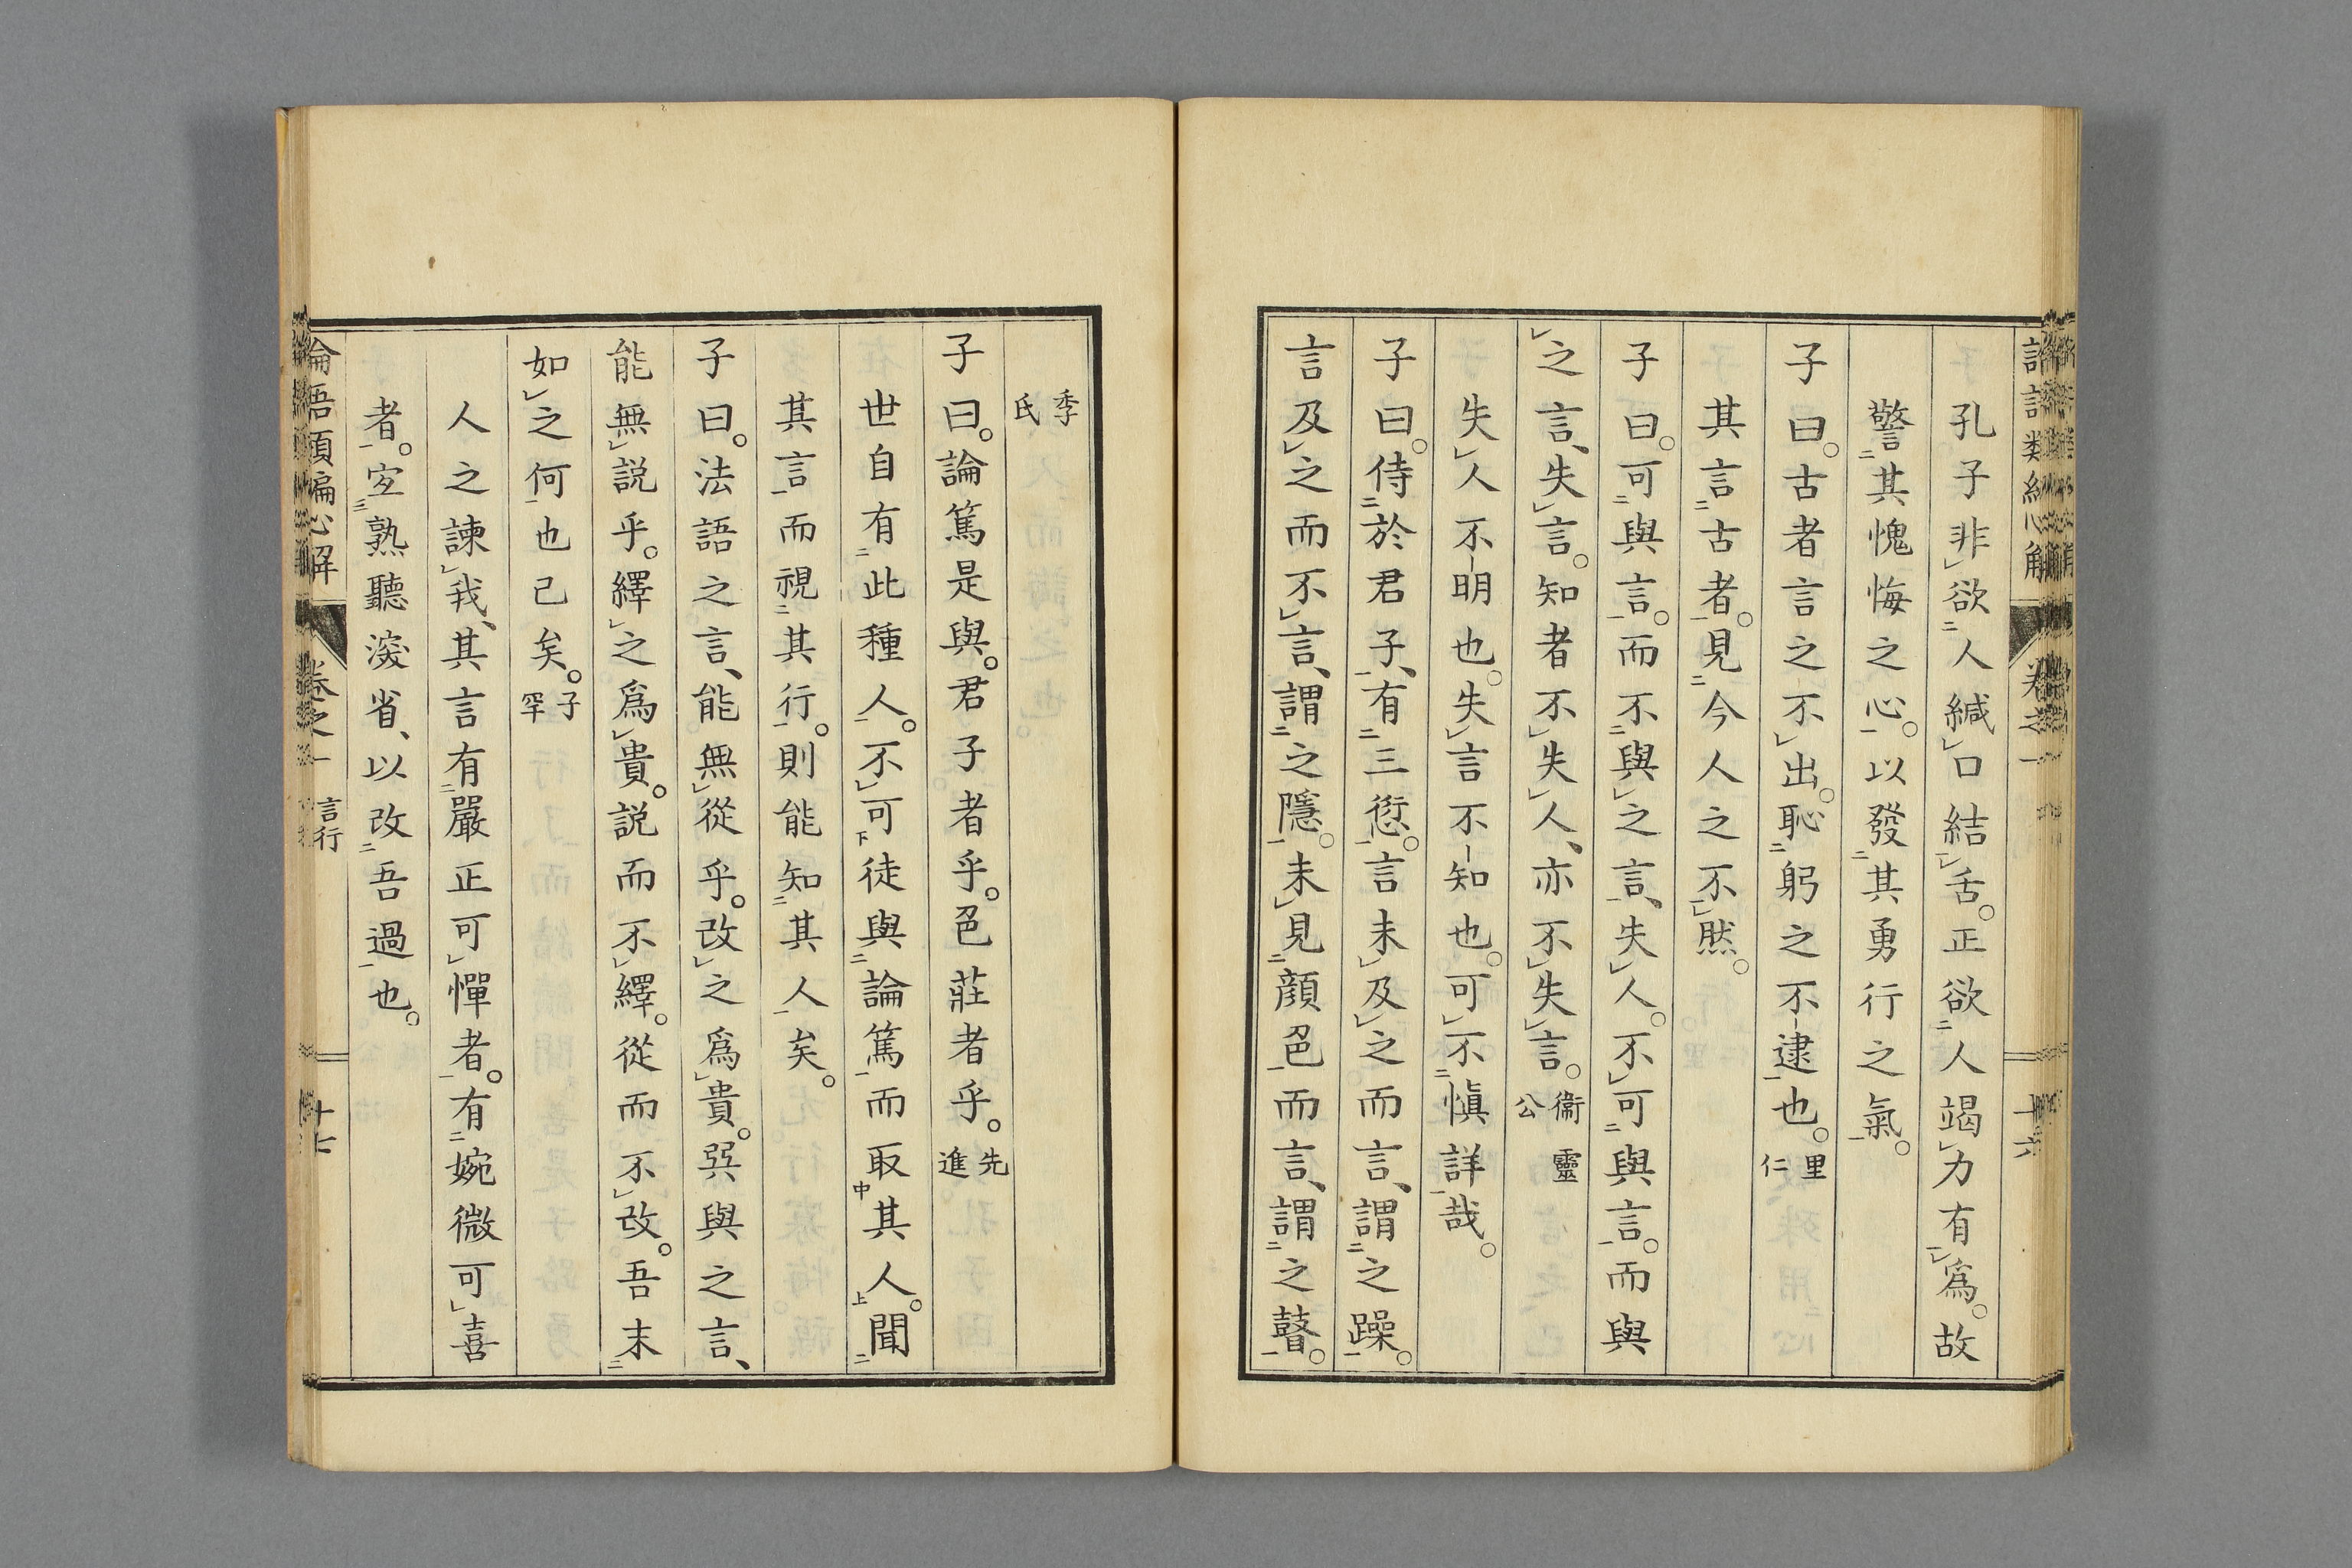 孔子非欲人緘口結舌。正欲人竭力有爲。故
警其愧悔之心。以發其勇行之氣。
子曰。古者言之不出。恥躬之不逮也。里仁
其言古者。見今人之不然。
子曰。可與言。而不與之言、失人。不可與言。而與
之言、失言。知者不失人、亦不失言。衞靈公
失人不明也。失言不知也。可不愼詳哉。
子曰。侍於君子、有三愆。言未及之而言、謂之躁。
言及之而不言、謂之隱。未見顔色而言、謂之瞽。
季氏
子曰。論篤是與。君子者乎。色莊者乎。先進
世自有此種人。不可徒與論篤而取其人。聞
其言而視其行。則能知其人矣。
子曰。法語之言、能無從乎。改之爲貴。巽與之言、
能無説乎。繹之爲貴。説而不繹。從而不改。吾末
如之何也已矣。子罕
人之諫我、其言有嚴正可憚者。有婉微可喜
者。宜熟聽深省、以改吾過也。
卷之一 言行 十七